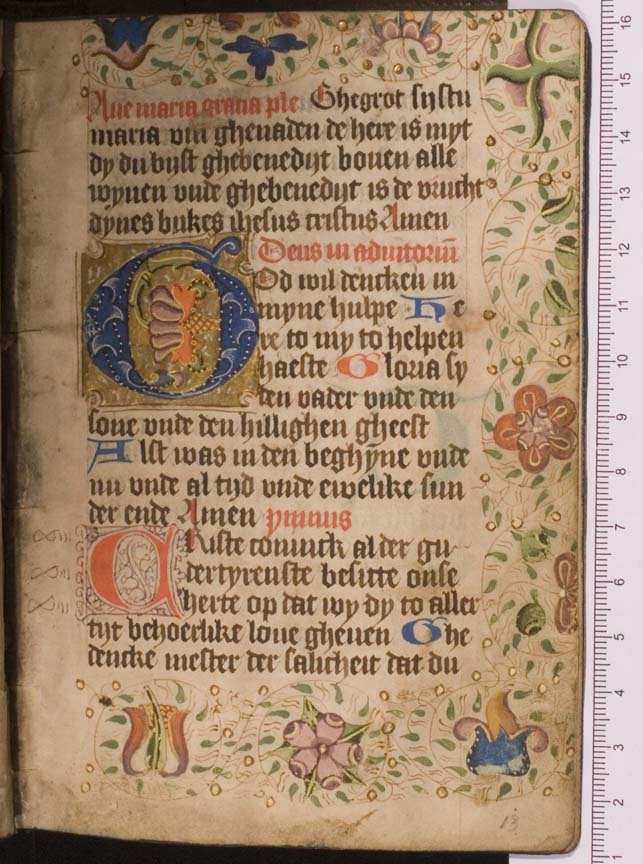 Aue maria gracia ple Ghegrot systu
maria vin ghenaden de here is myt
dy du byst ghebenedijt bouen alle
wyuen vnde ghebenedijt is de vrucht
dynes bukes ihesus cristus Amen
Deus in adiutoriū
God wil dencken in
myne hulpe He
re to my to helpen
haeste Gloria sy
den vader vnde den
sone vnde den hillighen gheest
Alst was in den beghȳne vnde
nu vnde al tyd vnde ewelike sun
der ende Amen ymnus
CRiste coninck alder gu
dertyrenste besitte onse
herte op dat wy dy to aller
tijt behoerlike loue gheuen Ghe
dencke mester der salicheit dat du
13
16
15
14
13
12
11
10
9
8
7
6
5
4
3
2
1